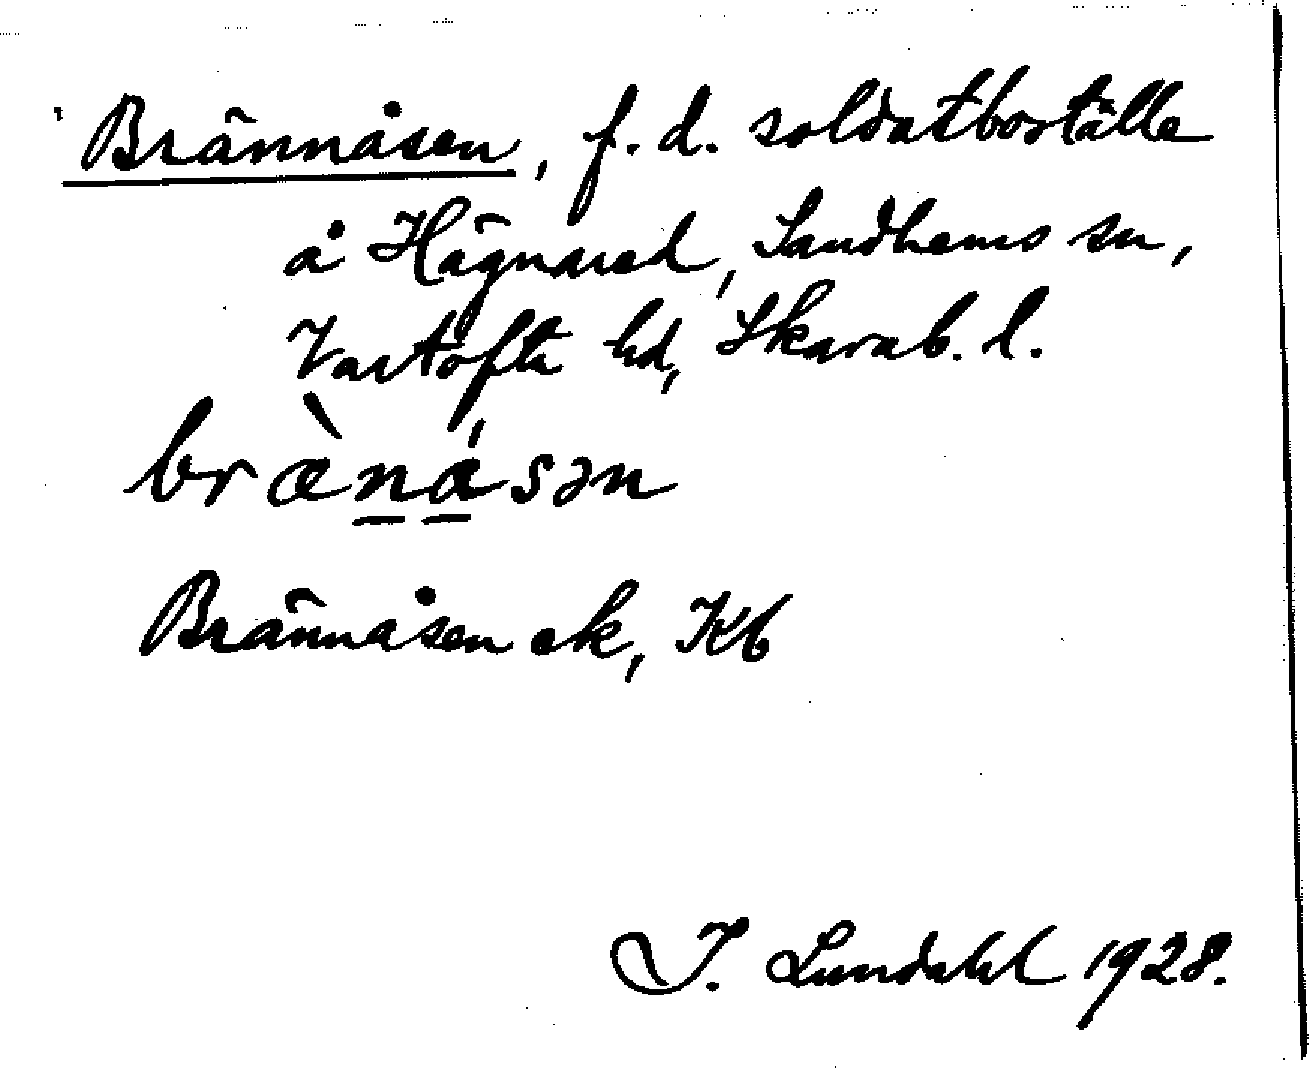 Brännåsen, f.d. soldatboställe
å Hägnared, Sandhems sn,
Vartofta hd, Skarab. l.
bræ̀na̍sən
Brännåsen ek, Kb
I. Lundahl 1928.